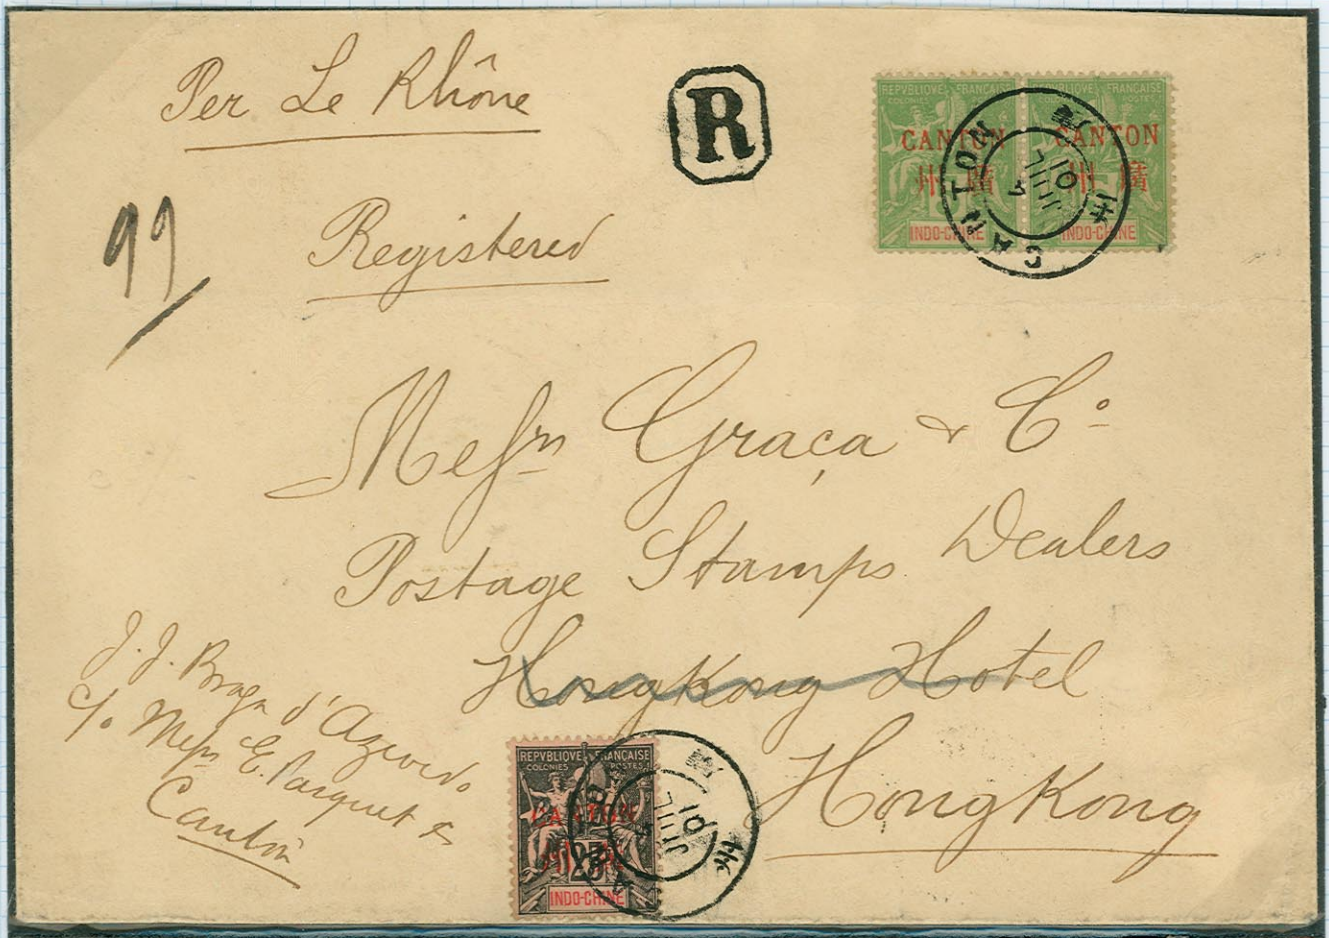 Per Le Rhône
R
REPVBLIQUE FRANÇAISE
COLONIES POSTES
CANTON
州廣
INDO-CHINE
REPVBLIQUE FRANÇAISE
COLONIES POSTES
CANTON
州廣
INDO-CHINE
CANTON
JUIL
01
99
Registered
Messrs Graça & Co
Postage Stamps Dealers
Hongkong Hotel
Hongkong
J. J. Braga d'Azevedo
c/o Messrs E. Pasquet &
Canton
REPVBLIQUE FRANÇAISE
COLONIES POSTES
CANTON
25
INDO-CHINE
JUIL
01